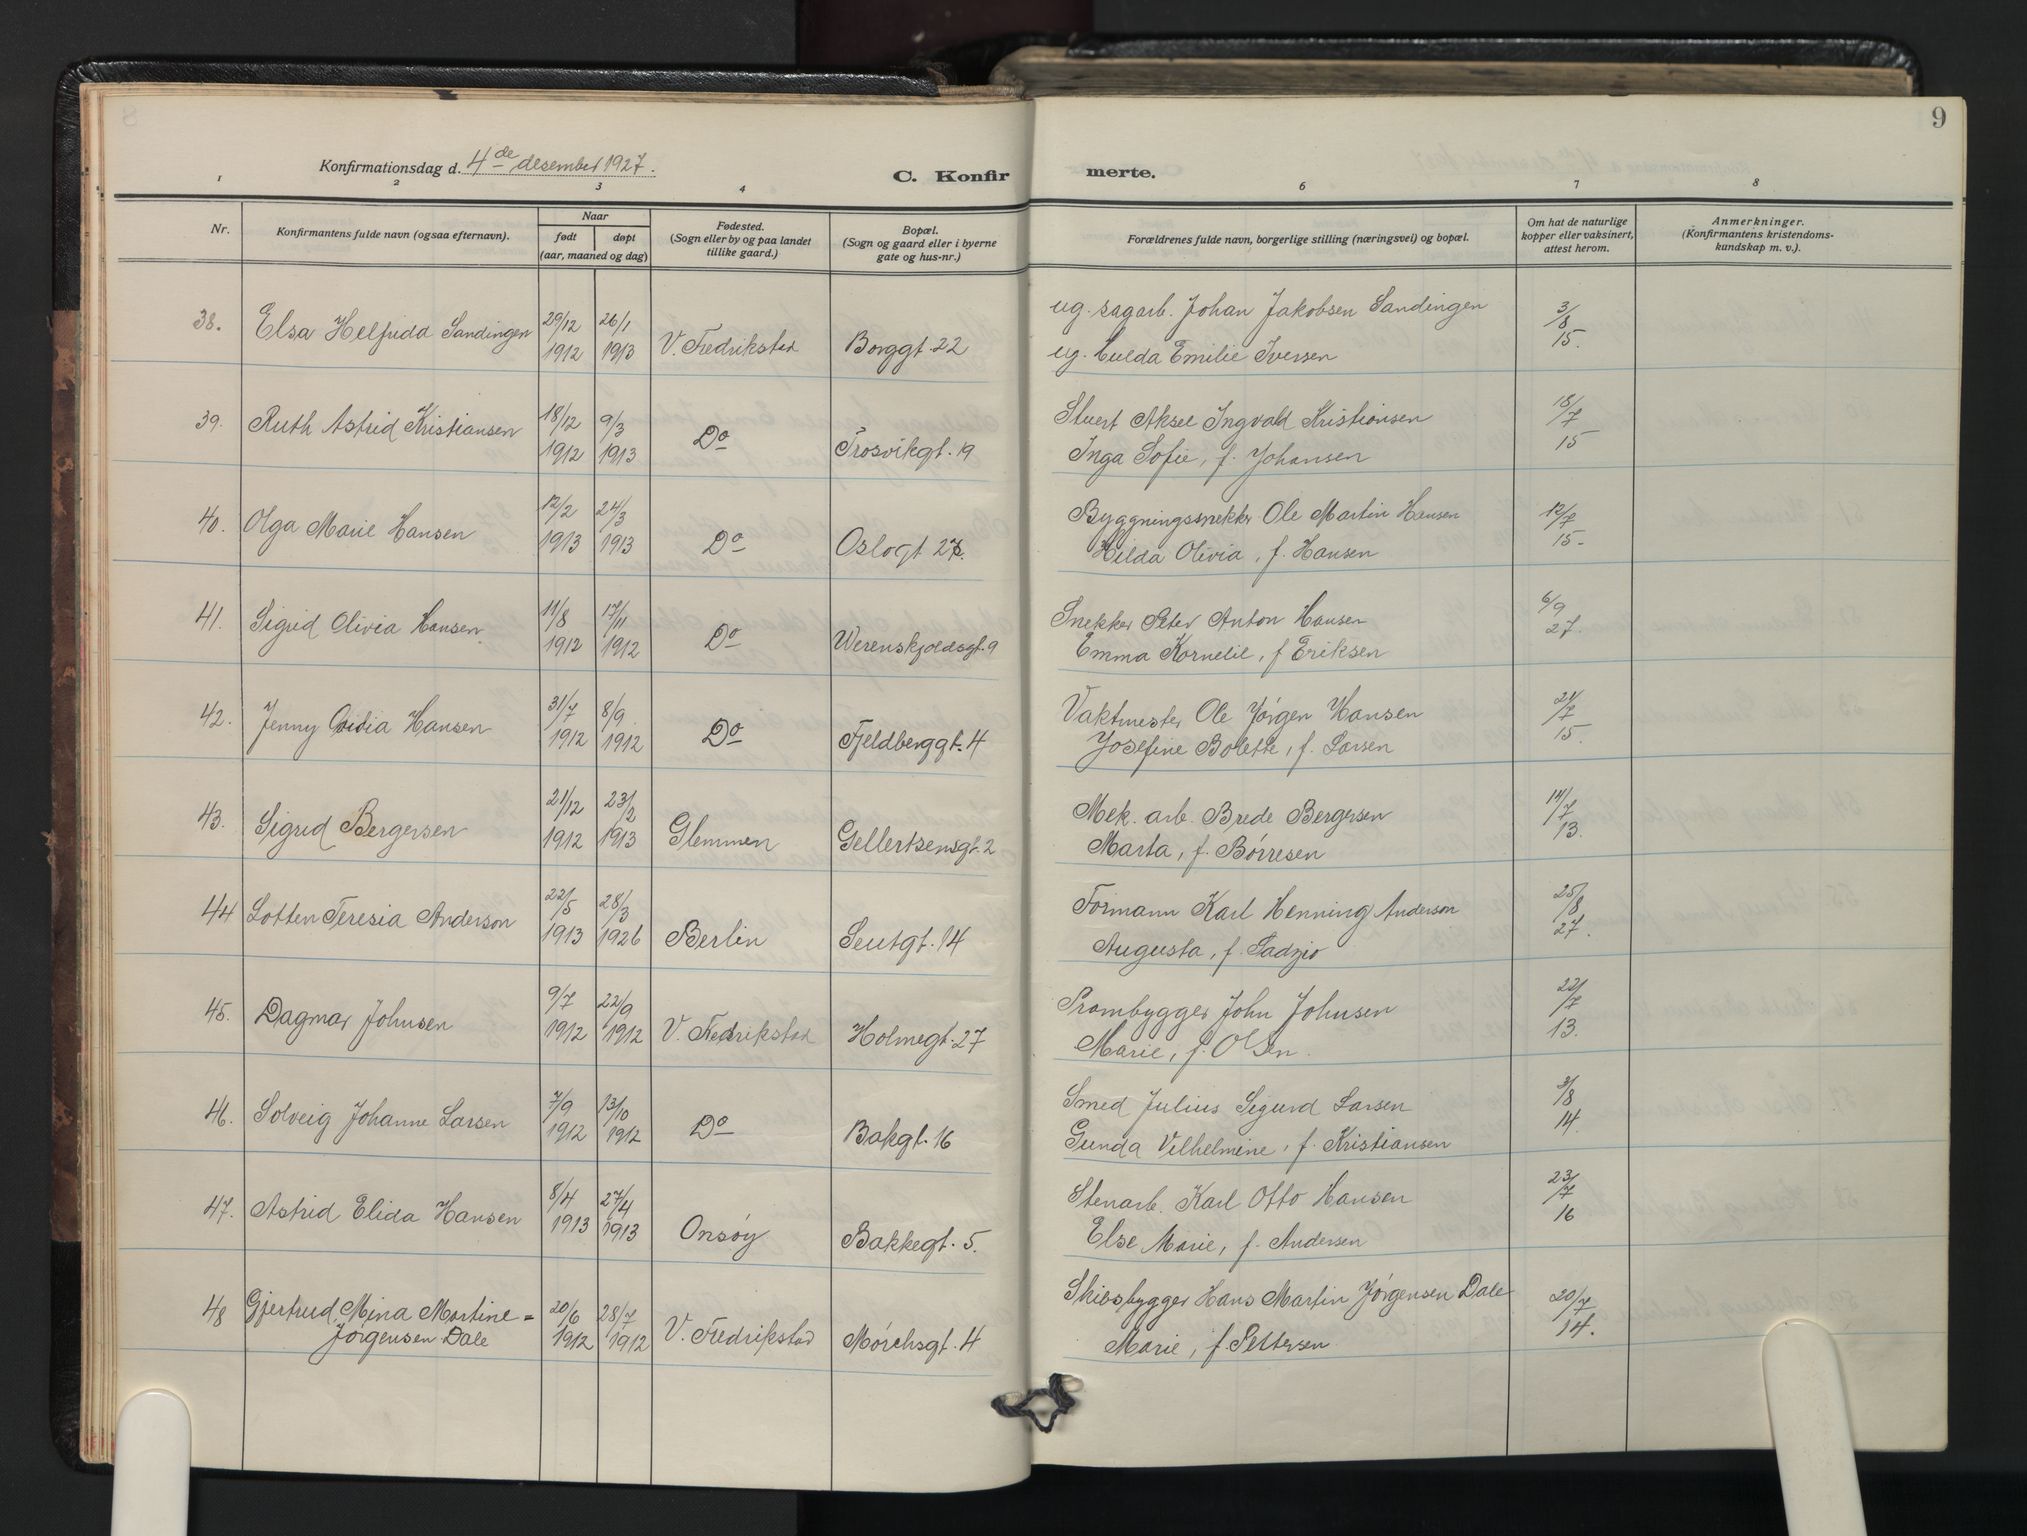 9
Konfirmationsdag d. 4de desember 1927.
C. Konfirmerte.
1 2 3 4 6 7 8
Nr.
Konfirmantens fulde navn (ogsaa efternavn).
Naar
født døpt
(aar, maaned og dag)
Fødested.
(Sogn eller by og paa landet
tillike gaard.)
Bopæl.
(Sogn og gaard eller i byerne
gate og hus-nr.)
Forældrenes fulde navn, borgerlige stilling (næringsvei) og bopæl.
Om hat de naturlige
kopper eller vaksinert,
attest herom.
Anmerkninger.
(Konfirmantens kristendoms-
kundskap m. v.).
38. Elsa Helfrida Sandingen 29/12 1912 26/1 1913 V. Fredrikstad Borggt. 22
ug. sagarb. Johan Jakobsen Sandingen 3/8 15.
ug. Hulda Emilie Iversen
39. Ruth Astrid Kristiansen 18/12 1912 9/3 1913 Do Trosvikgt. 19
Stuert Aksel Ingvald Kristiansen 18/7 15
Inga Sofie, f. Johansen
40. Olga Marie Hansen 12/2 1913 24/3 1913 Do Oslogt
Byggningssnekker Ole Martin Hansen 12/7 15-
Hilda Olivia, f. Hansen
41. Sigrid Olivia Hansen 11/8 1912 17/11 1912 Do Werenskjoldsgt. 9
Snekker Peter Anton Hansen 6/9 27.
Emma Kornelie, f Eriksen
42. Jenny Ovidia Hansen 31/7 1912 8/9 1912 Do Fjeldberggt. 4
Vaktmester Ole Jørgen Hansen 21/7 15.
Josefine Bolette, f. Larsen
43. Sigrid Bergersen 21/12 1912 23/2 1913 Glemmen Gellertsensgt. 2
Mek. arb. Brede Bergersen 14/7 13.
Marta, f. Børresen
44 Lotten Teresia Anderson 22/5 1913 28/3 1926 Berlin Seutgt. 14
Formann Karl Henning Anderson 25/8 27.
Augusta, f.
45. Dagmar Johnsen 9/7 1912 22/9 1912 V. Fredrikstad Holmegt. 27
Prambygger John Johnsen 22/7 13.
Marie, f. Olsen.
46. Solveig Johanne Larsen 7/9 1912 13/10 1912 Do Bakgt. 16
Smed Julius Sigurd Larsen 3/8 14
Gunda Vilhelmine, f. Kristiansen
47. Astrid Elida Hansen 8/4 1913 27/4 1913 Onsøy Bakkegt. 5.
Stenarb. Karl Otto Hansen 23/7 16
Else Marie, f. Andersen
48 Gjertrud Mina Martine= 20/6 1912 28/7 1912 V. Fredrikstad Mørchsgt. 4
Jørgensen Dale
Skibsbygger Hans Martin Jørgensen Dale 20/7 14.
Marie, f. Pettersen